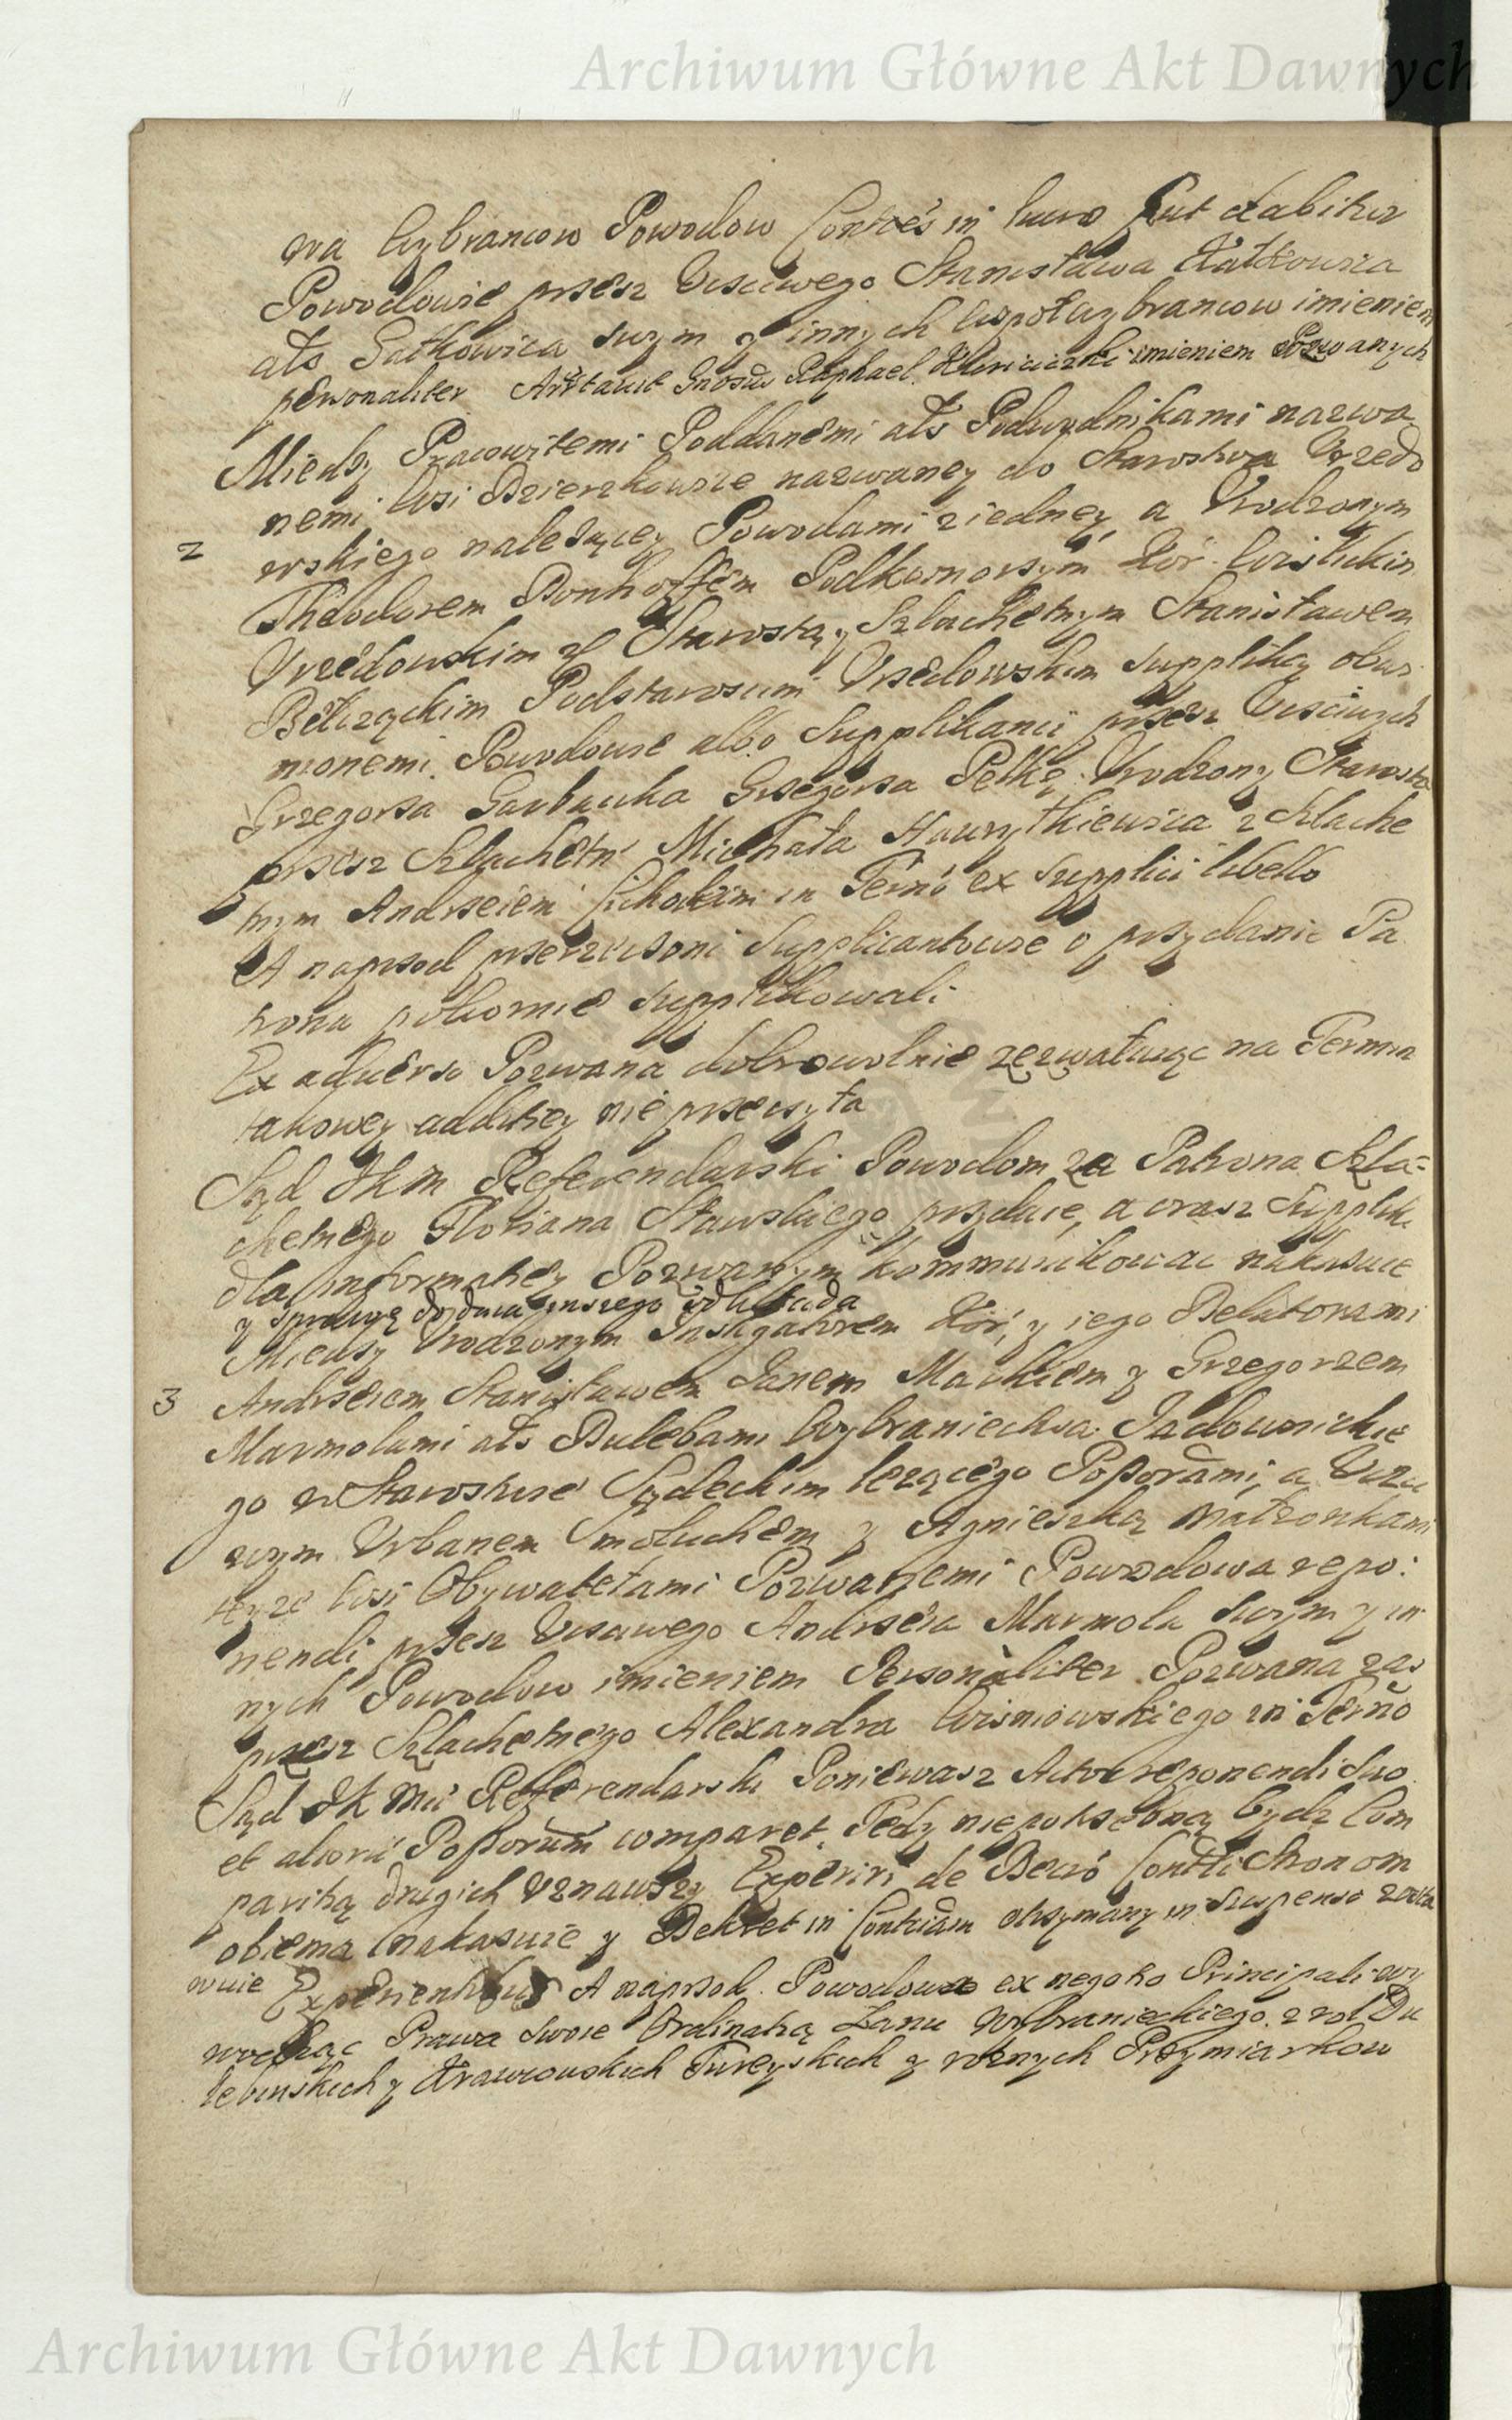 Archiwum Główne Akt Dawnych
na Wybrancow Powodow Contes in huius put dabitur
Powodowie przez Vsciwego Stanisława
ałs Satkowica swym y innych Wspołwybrancow imieniem
personaliter Raphael imieniem Pozwanych
Miedzy Pracowitemi Poddanemi ałs Podwodnikami nazwa
nemi Wsi Dzierzkowice nazwaney do Starostwa Vrzedo
2
wskiego nalezącey Powodami ziedney a Vrodzonym
Theodorem Donhoffem Podkomorzym Kor. Wislickim
Vrzedowskim &c Starostą, y Szlachetnym Stanisławem
Bełcząckim Podstaroscim Vrzedowskim Supplikcy obwi
nionemi. Powodowie albo Supplikanci przez Vsciwych
Grzegorza Garbaczka Grzegorza Pełkę. Vrodzony Starosta
przez Szlachetn Michała Hawryłkiewica z Szlache
tnym Andrzeiem Cichockim in Termo ex Supplici libello
A naprzod przerzeczoni Supplicantowie o przydanie Pa
trona pokornie supplikowali
Ex adverso Pozwana dobrowolnie zezwalaiąc na Termin
takowey addicyey nie przeczyła
Sąd JKM Referendarski Powodom za Patrona Szla=
chetnego Floriana Stawskiego przydaie, a oraz Supplik.
dla informacyey Pozwanym kommunikowac nakazuie
y sprawę do dnia inszego odkłada
Miedzy Vrodzonym Instigatorem Kor, y iego Delatorami
3
Andrzeiem Stanisławem Janem Maćkiem y Grzegorzem
Marmolami ałs Dulebami Wybraniectwa Jadownickie
go w Starostwie Sądeckim lezącego Possorami, a Vczci
wym Vrbanem Smoluchem y Agnieszką Małzonkami
teyze Wsi Obywatelami Pozwanemi Powodowa repo:
nendi przez Vsciwego Andrzeia Marmola swym y in
nych Powodow imieniem Personaliter Pozwana zas
przez Szlachetnego Alexandra Wisniowskiego in Termo
Sąd JKMci Referendarski Poniewasz Actor reponendi suo
et aliorū Possorum comparet Tedy niepotrzebną bydz Com
paritią drugich vznawszy Experiri de Decró Condtti Stronom
obiema nakazuie y Dekret in Contciam otrzymany in Suspenso zosta
wuie Experientibus A naprzod. Powodowa ex negotio Principali wy
wodząc Prawa swoie Ordinatią Łanu Wybranieckiego z rol Du
lebinskich y Krawcowskich Tureyskich y roznych Przymiarkow
Archiwum Główne Akt Dawnych